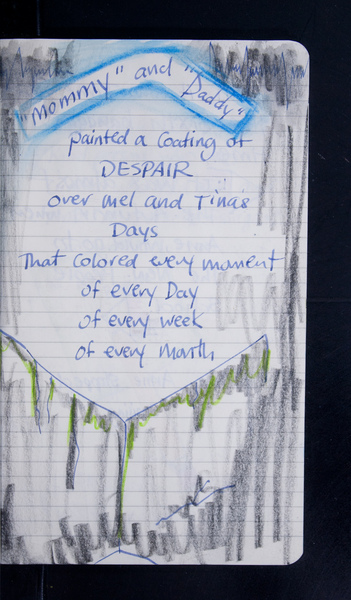 "Mommy" and "Daddy"
painted a Coating of
DESPAIR
over Mel and Tina's
Days
That Colored every moment
of every Day
of every week
of every Month